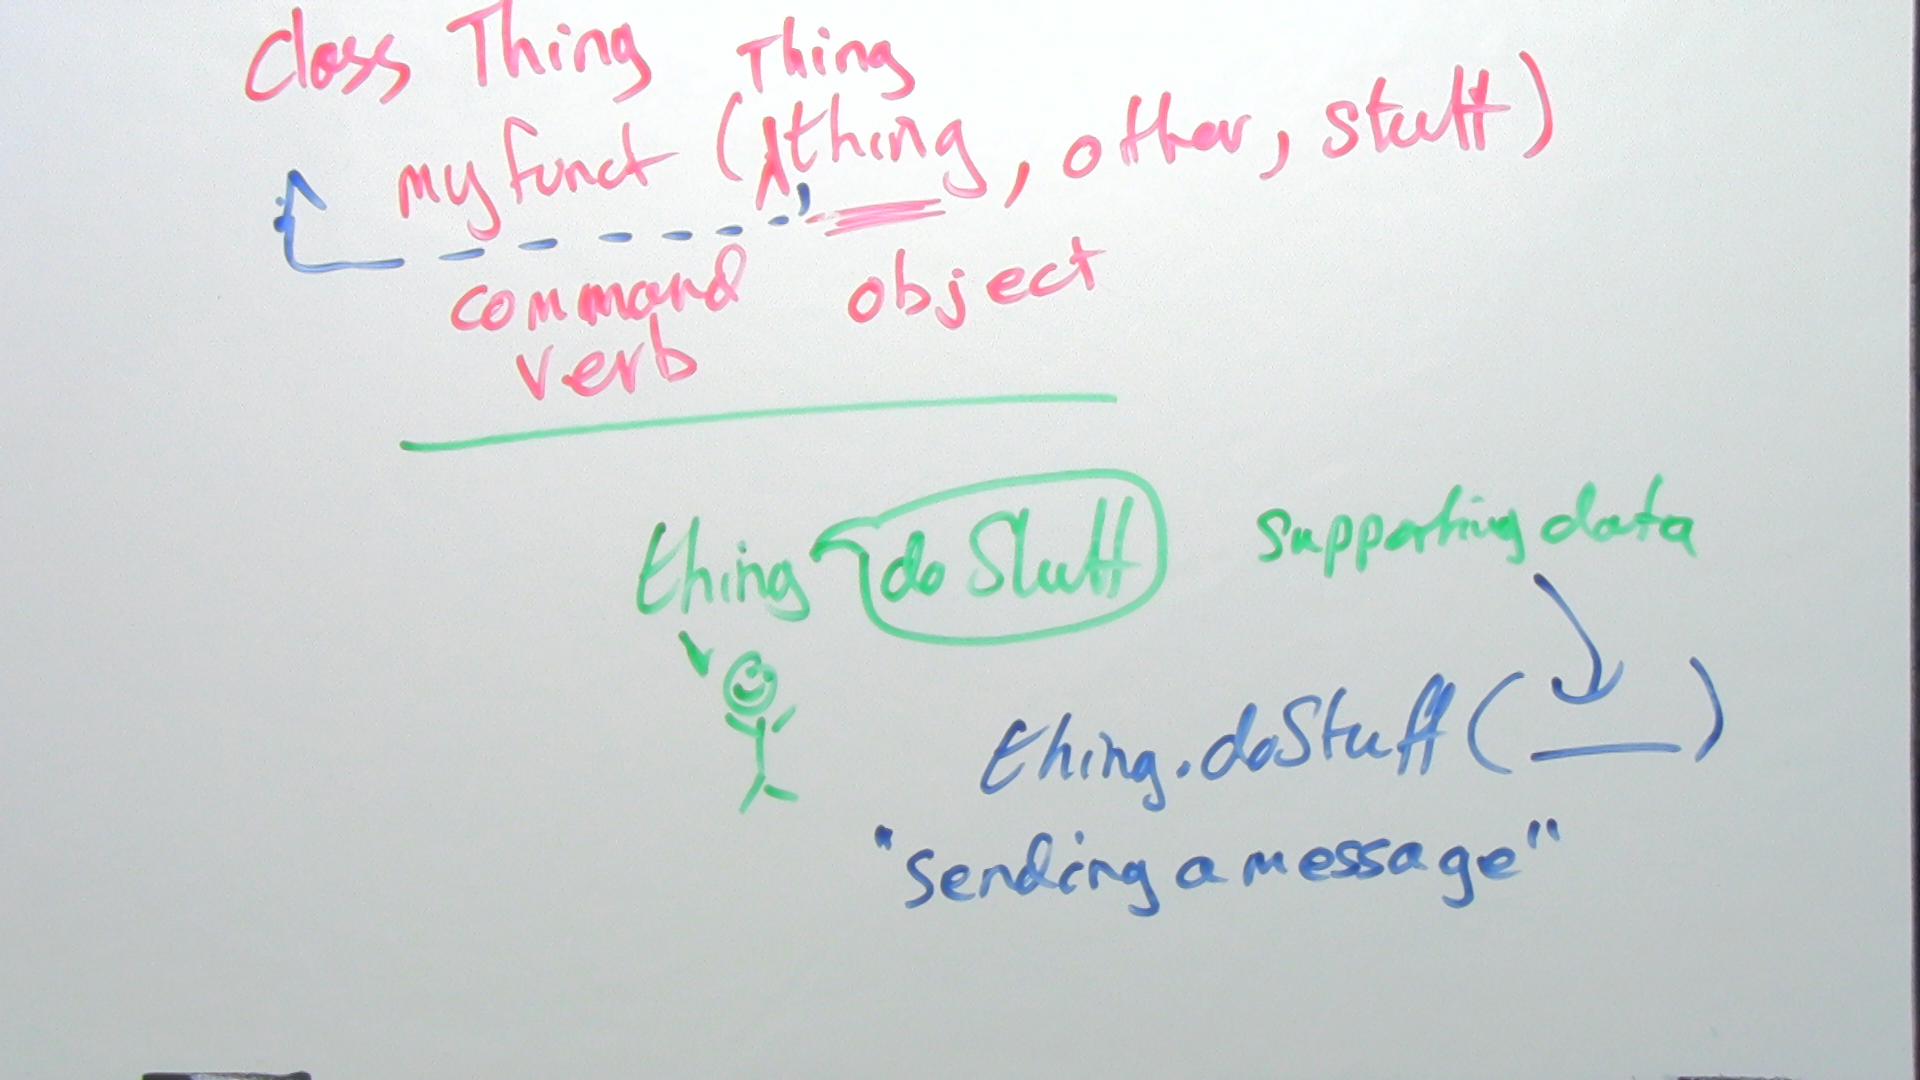 Class Thing Thing
myfunct (thing, other, stuff)
command object
verb
thing doStuff supporting data
thing.doStuff( )
"sending a message"